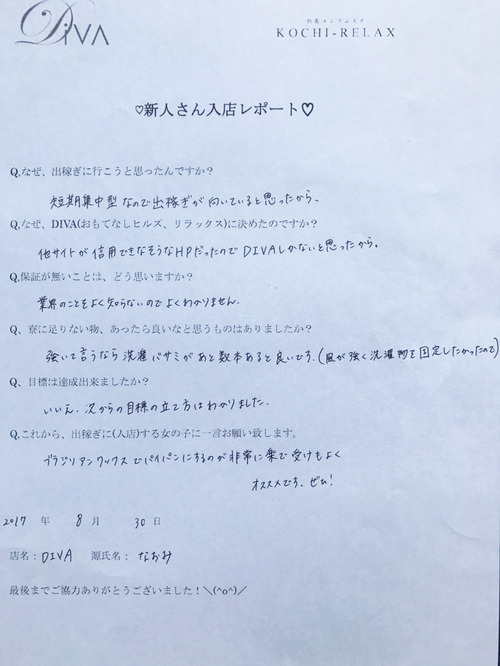 DIVA
KOCHI-RELAX
♡新人さん入店レポート♡
Q.なぜ、出稼ぎに行こうと思ったんですか？
短期集中型なので出稼ぎが向いていると思ったから、
Q.なぜ、DIVA(おもてなしヒルズ、リラックス)に決めたのですか？
他サイトが信用できなそうなHPだったのでDIVAしかないと思ったから。
Q.保証が無いことは、どう思いますか？
業界のことをよく知らないのでよくわかりません.
Q、寮に足りない物、あったら良いなと思うものはありましたか？
強いて言うなら洗濯バサミがあと数本あると良いです、(風が強く洗濯物を固定したかったので)
Q、目標は達成出来ましたか？
いいえ. 次からの目標の立て方はわかりました.
Q.これから、出稼ぎに(入店)する女の子に一言お願い致します。
ブラジリアンワックスでパイパンにするのが非常に楽で受けもよく
オススメです、ぜひ!
2017 年 8 月 30 日
店名：DIVA 源氏名：なおみ
最後までご協力ありがとうございました！＼(^o^)／